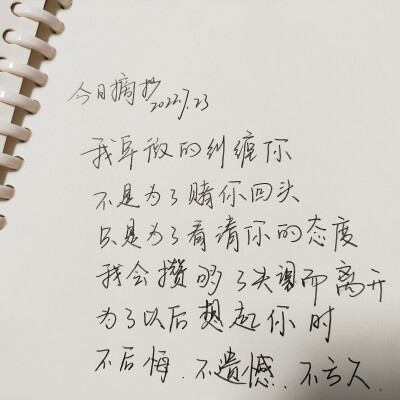 今日摘抄 2022.7.23
我卑微的纠缠你
不是为了赌你回头
只是为了看清你的态度
我会攒够了失望而离开
为了以后想起你时
不后悔.不遗憾.不亏欠.